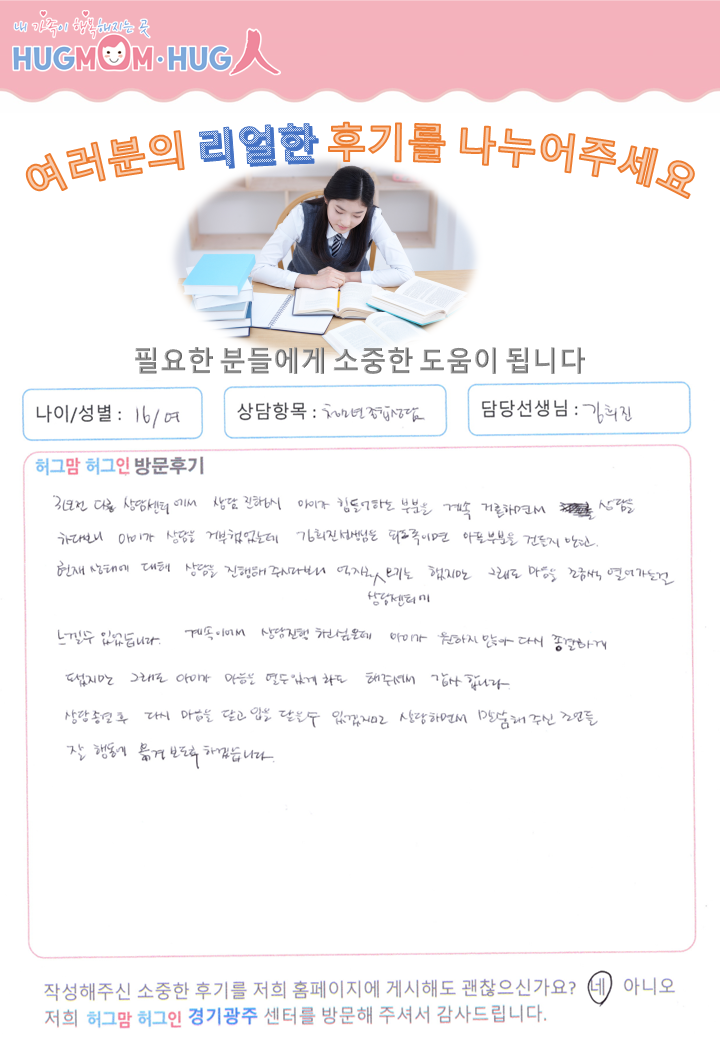 내 가족이 행복해지는 곳
HUGMOM·HUG人
여러분의 리얼한 후기를 나누어주세요
필요한 분들에게 소중한 도움이 됩니다
나이/성별 : 16/여
상담항목 : 청소년종합상담
담당선생님 : 김희진
허그맘 허그인 방문후기
다른 상담센터에서 상담 진행시 아이가 힘들어하는 부분을 계속 거론하면서 상담을
하다보니 아이가 상담을 거부했었는데 김희진선생님은 아픈부분을 건든지 않고
현재 상태에 대해 상담을 진행해 주시다보니 억지로 오기는 했지만 그래도 마음을 조금씩 열어가는걸
상담센터에
느낄수 있었습니다. 계속이어서 상담진행 하고싶은데 아이가 원하지 않아 다시 종결하게
됐지만 그래도 아이가 마음을 열수있게 해주셔서 감사합니다.
상담종결 후 다시 마음을 닫고 입을 닫을수 있겠지만 상담하면서 말씀해 주신 조언들
잘 행동에 옮겨 보도록 하겠습니다.
작성해주신 소중한 후기를 저희 홈페이지에 게시해도 괜찮으신가요? 네 아니오
저희 허그맘 허그인 경기광주 센터를 방문해 주셔서 감사드립니다.